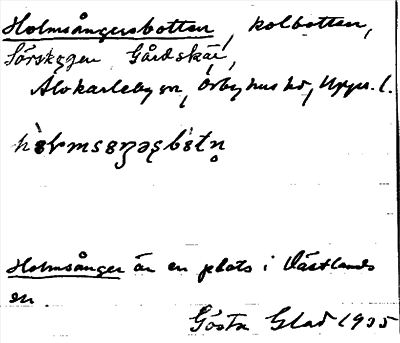 Holmsångersbotten, kolbotten,
Sörskogen Gårdskär,
Älvkarleby sn, Örbyhus hd, Uppl. l.
Holmsånger är en plats i Västlands
sn.
Gösta Glad 1935